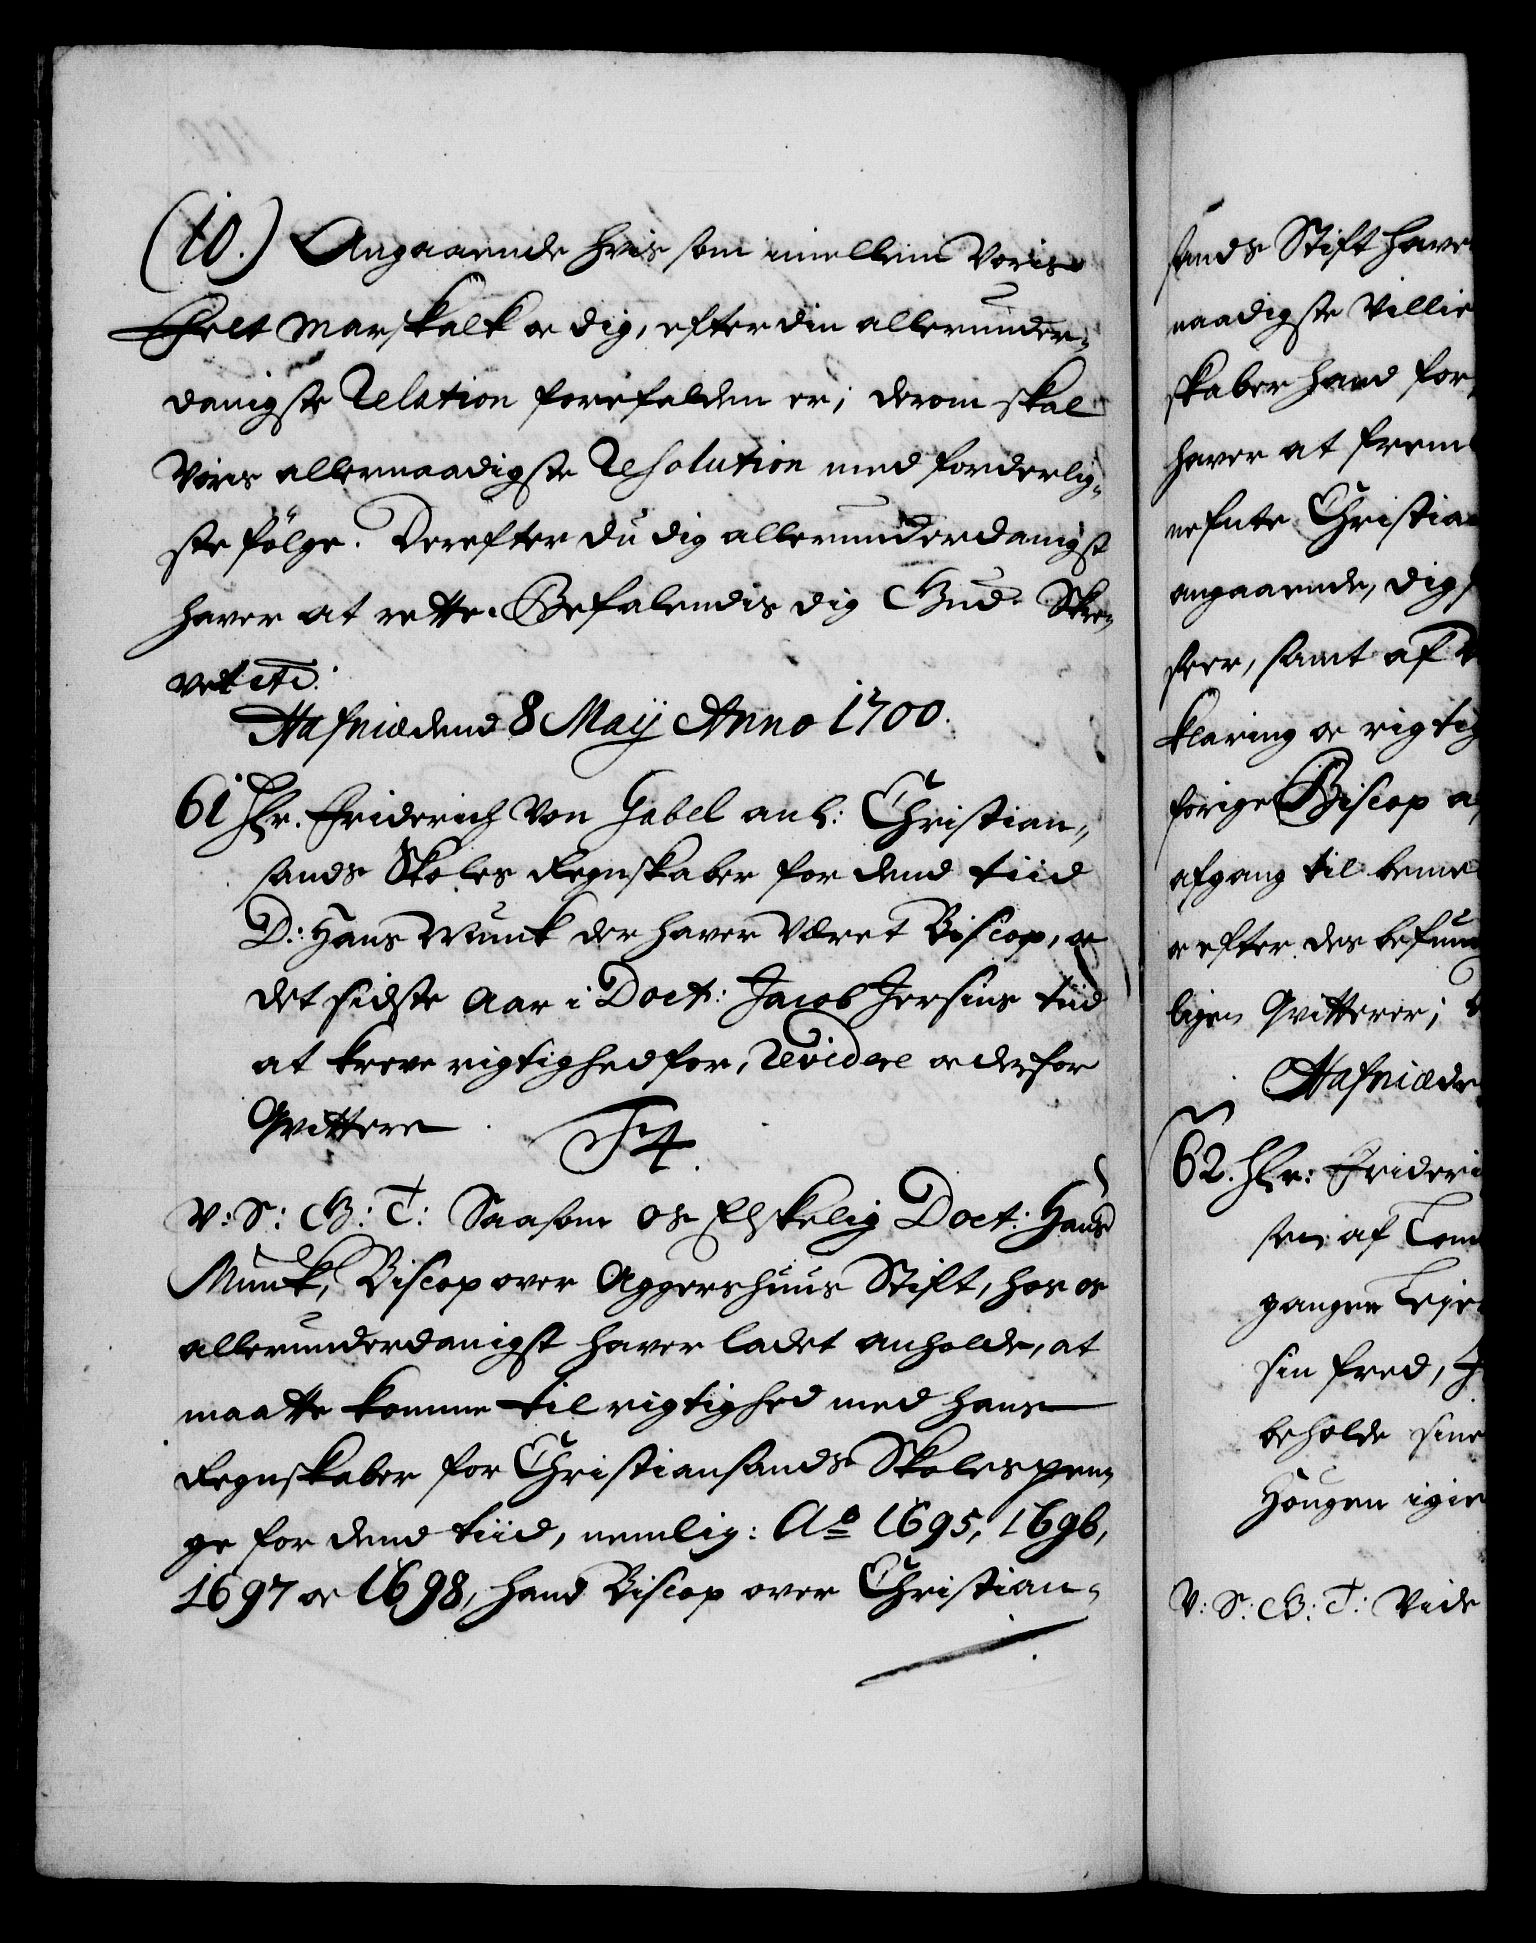 (10.) Angaaende hvis som imellem Voris
Felt Marskalk oc dig, efter din allerunder-
danigste Relation forefalden er; derom skal
Voris allernaadigste Resolution med forderlig-
ste følge. Derefter du dig allerunderdanigst
haver at rette. Befalendis dig Gud. Skre-
vet etc:
Hafniæ dend 8 Maij Anno 1700.
61 Hr. Friderich Von Gabel anl: Christian-
sands Skoles Regnskaber for dend tiid
D: Hans Munk der haver Været Biscop, oc
det sidste Aar i Doct: Jacob Jersins tiid
at kreve rigtighed for, Revidere oc derfor
Qvittere
F4.
V: S: G: T: Saasom os Elskelig Doct: Hans
Munk, Biscop over Aggershuus Stift, hos os
allerunderdanigst haver ladet anholde, at
maatte komme til rigtighed med hans
Regnskaber for Christiansands Skoles pen-
ge for dend tiid, nemlig: Ao 1695, 1696,
1697 oc 1698, hand Biscop over Christian-
sands Stift have
naadigste Villie
skaber hand for
haver at frem
nefnte Christia
angaaende, dig
seer, samt af
klaring oc rigtig
forige Biscop a
afgang til beme
oc efter des befun
ligen Qvitterer;
Hafniæ de
62. Hr: Frideri
sen af Tom
gangen Leje
sin fred,
beholde sine
Hougen igie
V: S: G: T: Vide